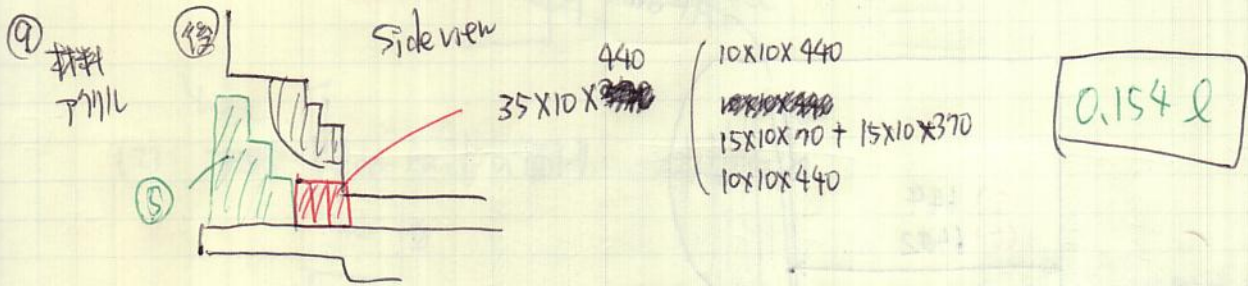 ⑨
材料
アクリル
後
Side view
⑤
440
35×10×
10×10×440
15×10×70 + 15×10×370
10×10×440
0.154 ℓ